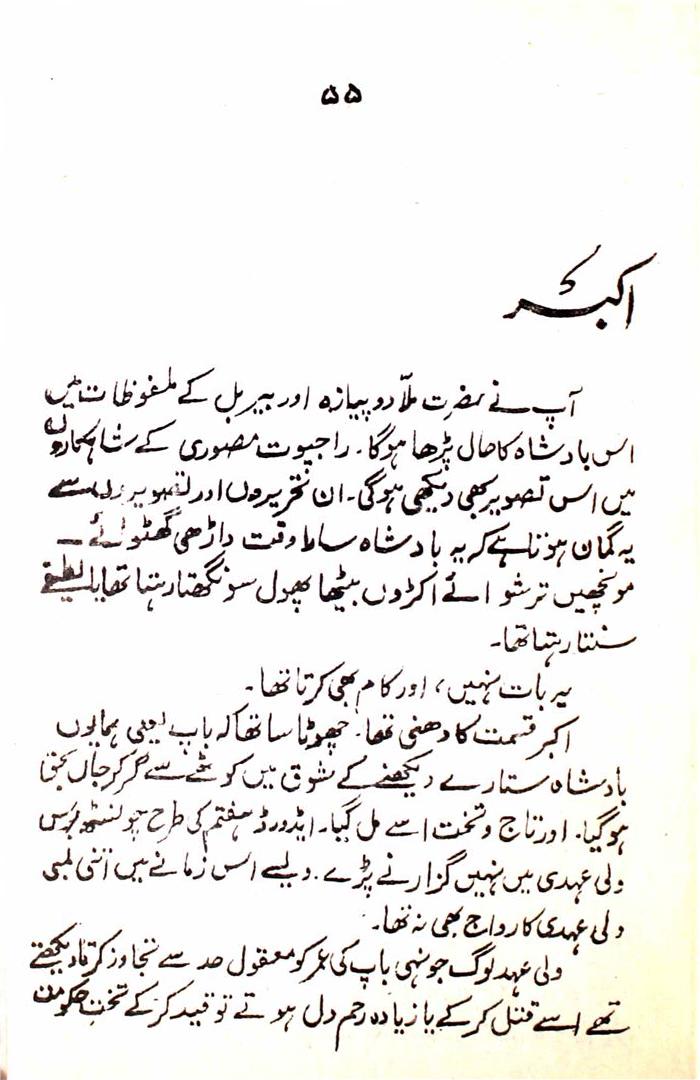 ۵۵
اکبر
آپ نے حضرت ملّا دو پیازہ اور بیربل کے ملفوظات میں
اس بادشاہ کا حال پڑھا ہوگا۔ راجپوت مصوری کے شاہکاروں
میں اس تصویر بھی دیکھی ہوگی۔ ان تحریروں اور تصویروں سے
یہ گمان ہوتا ہے کہ یہ بادشاہ سارا وقت داڑھی گھٹوائے۔
مونچھیں ترشوائے اکڑوں بیٹھا پھول سونگھتا رہتا تھا یا لطیفے
سنتا رہتا تھا۔
یہ بات نہیں، اور کام بھی کرتا تھا۔
اکبر قسمت کا دھنی تھا۔ چھوٹا سا تھا کہ باپ یعنی ہمایوں
بادشاہ ستارے دیکھنے کے شوق میں کوٹھے سے گر کر جاں بحق
ہو گیا۔ اور تاج و تخت اسے مل گیا۔ ایڈورڈ ہفتم کی طرح چونسٹھ برس
ولی عہدی میں نہیں گزارنے پڑے۔ ویسے اس زمانے میں اتنی لمبی
ولی عہدی کا رواج بھی نہ تھا۔
ولی عہد لوگ جونہی باپ کی عمر کو معقول حد سے تجاوز کرتا دیکھتے
تھے اسے قتل کر کے یا زیادہ رحم دل ہوتے تو قید کر کے تخت حکومت